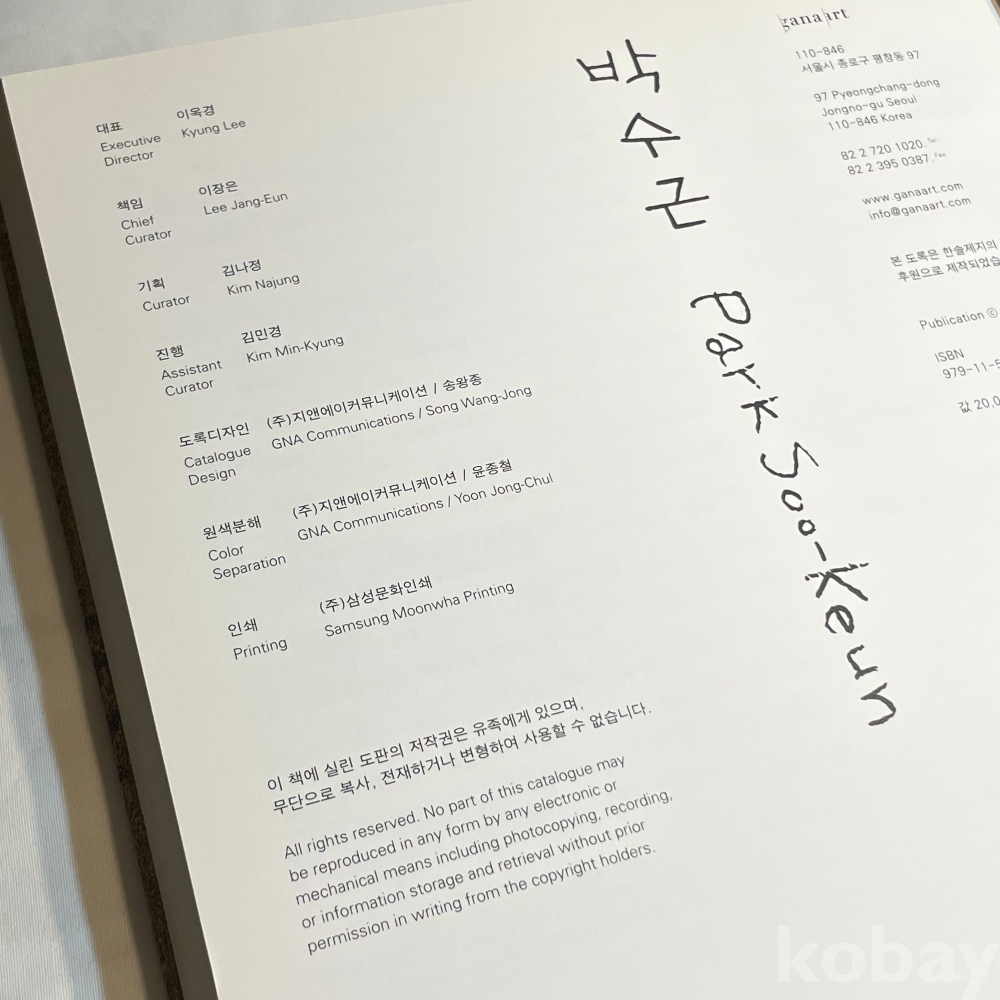 대표
Executive
Director
이옥경
Kyung Lee
책임
Chief
Curator
이장은
Lee Jang-Eun
기획
Curator
김나정
Kim Najung
진행
Assistant
Curator
김민경
Kim Min-Kyung
도록디자인
Catalogue
Design
(주)지앤에이커뮤니케이션 / 송왕종
GNA Communications / Song Wang-Jong
원색분해
Color
Separation
(주)지앤에이커뮤니케이션 / 윤종철
GNA Communications / Yoon Jong-Chul
인쇄
Printing
(주)삼성문화인쇄
Samsung Moonwha Printing
이 책에 실린 도판의 저작권은 유족에게 있으며,
무단으로 복사, 전재하거나 변형하여 사용할 수 없습니다.
All rights reserved. No part of this catalogue may
be reproduced in any form by any electronic or
mechanical means including photocopying, recording,
or information storage and retrieval without prior
permission in writing from the copyright holders.
박수근 Park Soo-Keun
gana art
110-846
서울시 종로구 평창동 97
97 Pyeongchang-dong
Jongno-gu Seoul
110-846 Korea
82 2 720 1020. Tel
82 2 395 0387. Fax
www.ganaart.com
info@ganaart.com
본 도록은 한솔제지의
후원으로 제작되었습
Publication ©
ISBN
979-11-5
값 20,0
kobay